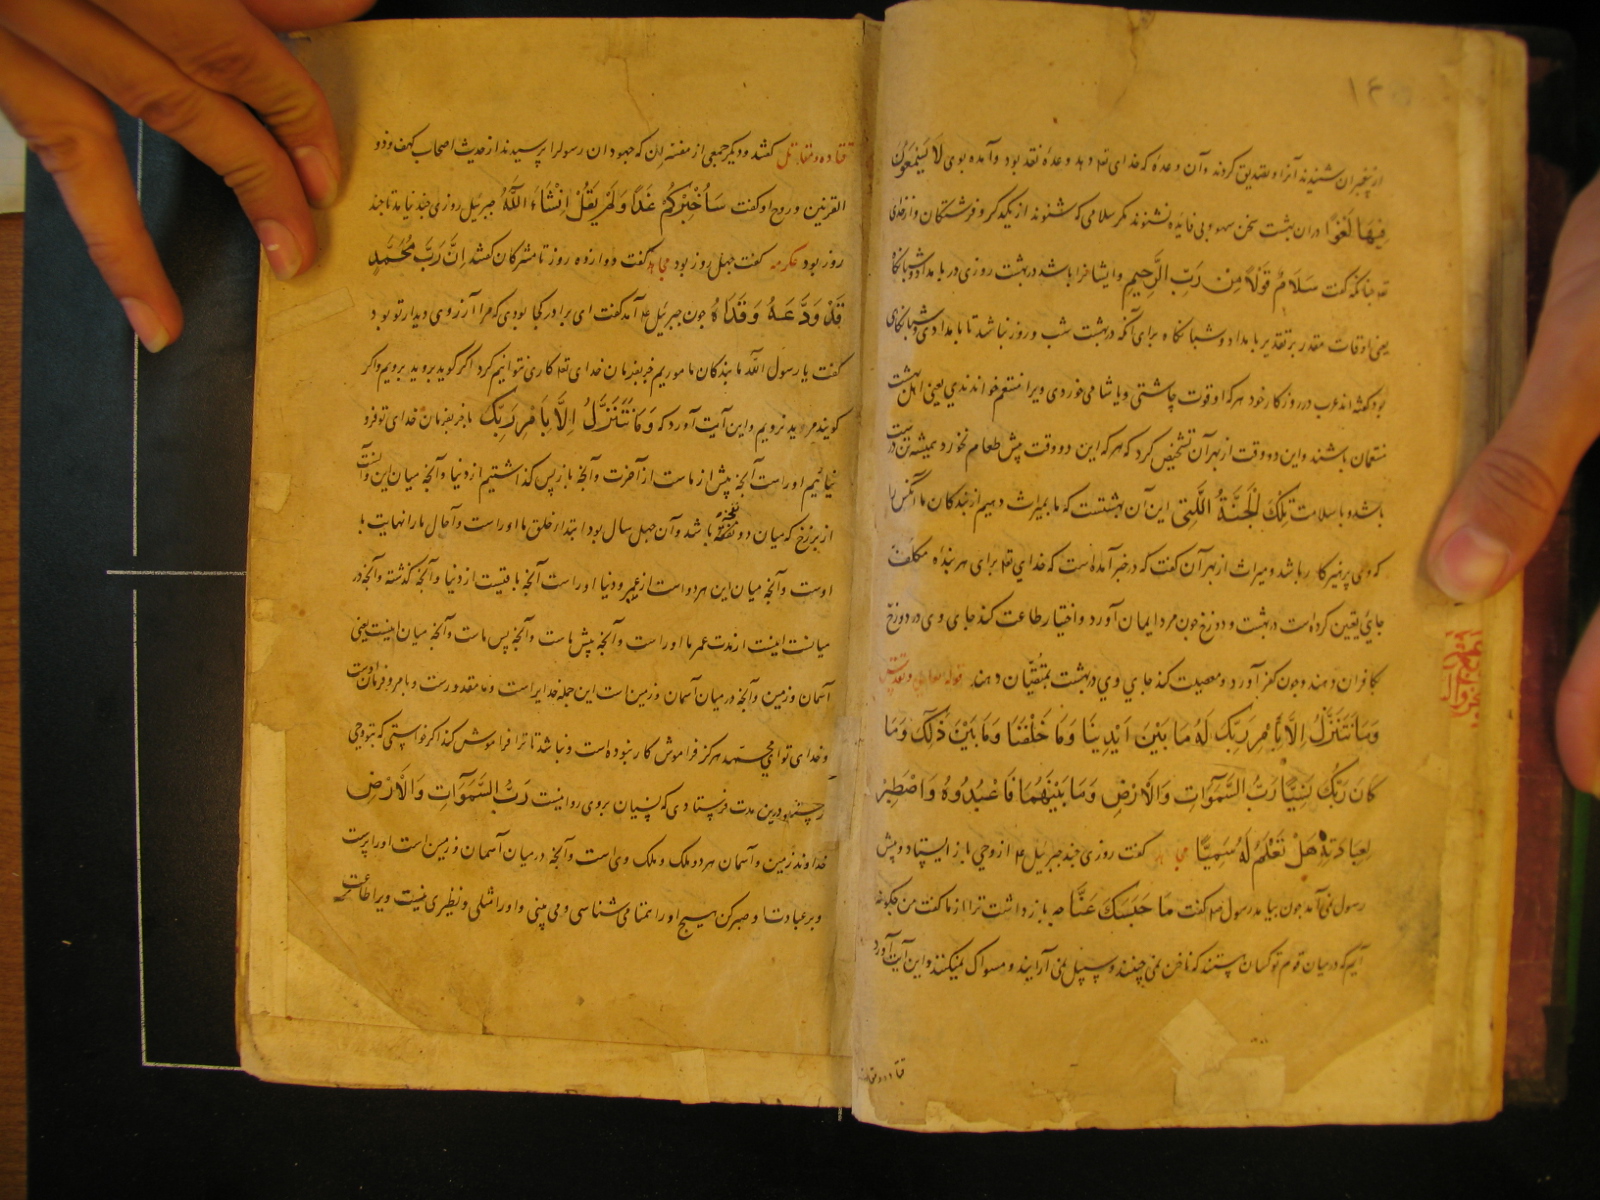 از پیغمبران شنیدند آنرا و تصدیق کردند و آن وعده که خدای تع دهد وعدهٔ نقد بود و آمده بوی لَا یَسْمَعُونَ
فِیهَا لَغْوًا دران بهشت سخن سهو و بی فایده نشنوند مکر سلامی که شنوند از یکدکر و فرشتکان و از خدای
تع چنانکه کفت سَلَامٌ قَوْلًا مِنْ رَبِّ الرَّحِیمِ و ایشانرا باشد در بهشت روزی در بامداد و شبانکاه
یعنی اوقات مقدر بر تقدیر بامداد و شبانکاه برای آنکه در بهشت شب و روز نباشد تا بامدادی و شبانکاهی
بود کفته اند عرب در روزکار خود هر کرا قوت چاشتی و یا شامی خوردی ویرا متنعم خواندندی یعنی اهل بهشت
متنعمان باشند و این دو وقت از بهر آن تشخیص کرد که هر که این دو وقت پیش طعام نخورد همیشه تن درست
باشد و با سلامت تِلْکَ الْجَنَّةُ الَّتِی این آن بهشتست که ما بمیراث دهیم از بندکان ما آنکس را
که وی پرهیزکار باشد و میراث از بهر آن کفت که در خبر آمده است که خدای تع برای هر بنده مکلف
جائ یقین کرده است در بهشت و دوزخ چون مرد ایمان آورد و اختیار طاعت کند جای وی در دوزخ
کافران دهند و چون کفر آورد و معصیت کند جای وی در بهشت بمتقیان دهند قوله تعالی و تقدس
وَمَا نَتَنَزَّلُ اِلَّا بِأَمْرِ رَبِّکَ لَهُ مَا بَیْنَ اَیْدِینَا وَمَا خَلْفَنَا وَمَا بَیْنَ ذَلِکَ وَمَا
کَانَ رَبُّکَ نَسِیًّا رَبُّ السَّمَوَاتِ وَالْاَرْضِ وَمَا بَیْنَهُمَا فَاعْبُدُوهُ وَاصْطَبِرْ
لِعِبَادَتِهِ هَلْ تَعْلَمُ لَهُ سَمِیًّا مجاهد کفت روزی چند جبرئیل ع از وحی باز ایستاد و پیش
رسول نمی آمد چون بیامد رسول ص کفت مَا حَبَسَکَ عَنَّا چه باز داشت ترا از ما کفت من چکونه
آیم که در میان قوم تو کسان هستند که ناخن نمی چینند و سبیل نمی آرایند و مسواک نمیکنند و این آیت آورد
قتاده و مقاتل
قتاده و مقاتل کفتند و دیکر جمعی از مفسران که جهودان رسول را پرسیدند از حدیث اصحاب کهف و ذو
القرنین و روح او کفت سَأُخْبِرُکُمْ غَدًا وَلَمْ یَقُلْ اِنْشَاءَ اللّٰهُ جبرئیل روزی چند نیامد تا چند
روز بود عکرمه کفت چهل روز بود مجاهد کفت دوازده روز تا مشرکان کفتند اِنَّ رَبَّ مُحَمَّدٍ
قَدْ وَدَّعَهُ وَقَدَا هُ چون جبرئیل ع آمد کفت ای برادر کجا بودی که مرا آرزوی دیدار تو بود
کفت یا رسول اللّه ما بندکان ماموریم جز بفرمان خدای تع کاری نتوانیم کرد اکر کوید بروید برویم و اکر
کویند مروید نرویم و این آیت آورد که وَمَا نَتَنَزَّلُ اِلَّا بِاَمْرِ رَبِّکَ ما جز بفرمان خدای تو فرو
نیائیم او راست آنچه پیش از ماست از آخرت و آنچه باز پس کذاشتیم از دنیا و آنچه میان این و آنست
از برزخ که میان دو نفخه باشد و آن چهل سال بود ابتدار خلق ما او راست و آجال ما را نهایت با
اوست و آنچه میان این هر دو است از عمر و دنیا او راست آنچه باقیست از دنیا و آنچه کذشته و آنچه در
میانست اینست از مدت عمر ما او راست و آنچه پیش ماست و آنچه پس ماست و آنچه میان اینست یعنی
آسمان و زمین و آنچه در میان آسمان و زمین است این جمله خدایراست و مقدورست و بامر و فرمان اوست
و خدای تو ای محمد هرکز فراموش کار نبوده است و نباشد تا ترا فراموش کند اکر خواستی که بتو وحی
درین مدت فرستادی که نسیان بر وی روا نیست رَبُّ السَّمَوَاتِ وَالْاَرْضِ
خداوند زمین و آسمان هر دو ملک و ملک وی است و آنچه در میان آسمان و زمین است او را پرست
و بر عبادت او صبر کن هیچ او را همتا می شناسی و می بینی و او را مثلی و نظیری نیست ویرا طاعت